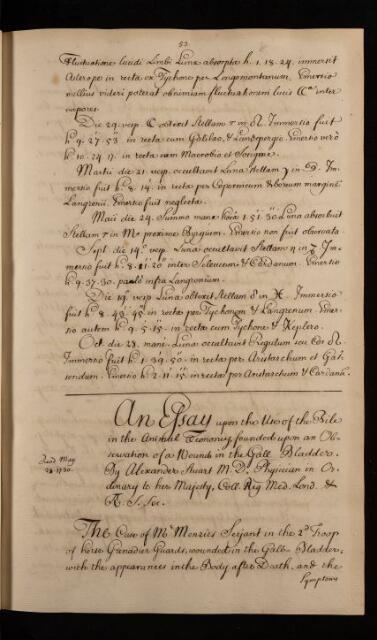 53.
Fluctuatione lucidi Limbi Lunæ absorpta h. 1. 18. 24. immersit
Asterope in recta ex Tychone per Longomontanum. Emersio
melius videri poterat ob nimiam fluctuationem lucis inter
vapores.
Die 29. vesp. obtexit Stellam in Immersio fuit
h. 9. 27. 53 in recta cum Galileo, & Lansbergio. Emersio verò
h. 10. 24. 17. in recta cum Macrobio et Sosigene.
Martii die 21. vesp. occultavit Luna Stellam in Im-
mersio fuit h. 8. 14. in recta per Copernicum & boreum marginem
Langreni. Emersio fuit neglecta.
Maii die 24. Summo mane horâ 1. 51. 30 Luna abscondit
Stellam in proxime Byrgium. Emersio non fuit observata.
Sept. die 14. vesp. Luna occultavit Stellam in Im-
mersio fuit h. 8. 11. 20 inter Seleucum & Cardanum. Emersio
h. 9. 37. 30. paulò infra Langrenum.
Die 19. vesp. Luna obtexit Stellam in Immersio
fuit h. 8. 49. 45. in recta per Tychonem & Langrenum. Emer-
sio autem h. 9. 5. 15. in recta cum Tychone & Keplero.
Oct. die 23. mane. Luna occultavit Regulum seu Cor
Immersio fuit h. 1. 39. 50. in recta per Aristarchum et Gas-
sendum. Emersio h. 2. 11. 15. in recta per Aristarchum & Cardanum.
An Essay upon the Use of the Bile
in the Animal Œconomy, founded upon an Ob-
servation of a Wound in the Gall Bladder.
Read May
28. 1730.
By Alexander Stuart M.D. Physician in Or-
dinary to her Majesty, Coll. Reg. Med. Lond. &
R. S. Soc.
The Case of Mr. Menzies Serjant in the 2d Troop
of horse Grenadier Guards, wounded in the Gall-Bladder,
with the appearances in the Body after Death, and the
Symptoms